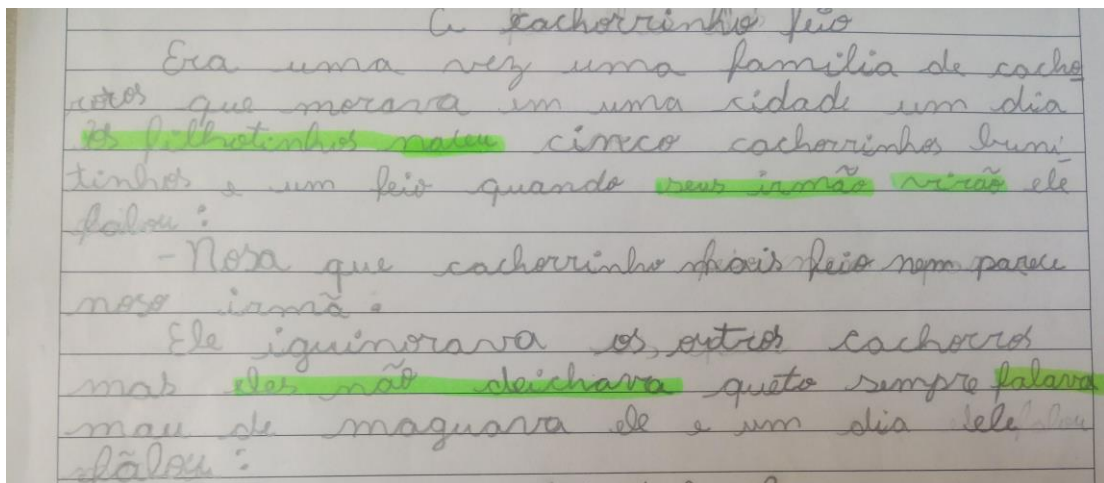 O cachorrinho feio
Era uma vez uma familia de cacho
rros que morava em uma cidade um dia
os filhotinhos naceu cinco cachorrinhos buni
tinhos e um feio quando seus irmão virão ele
falou:
- Nosa que cachorrinho mais feio nem parece
noso irmã.
Ele iguinorava os outros cachorros
mas eles não deichava queto sempre falava
mau de maguava ele e um dia ele
falou: